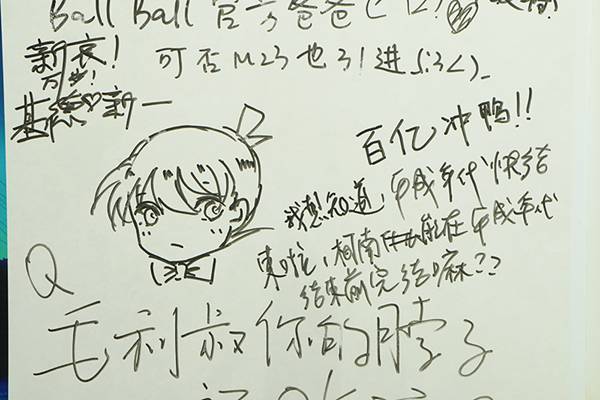 Ball Ball 官方爸爸
新哀!
万岁!
可否M23也引进
基德♡新一
百亿冲鸭!!
我想知道,平成年代快结
束啦,柯南能在平成年代
结束前完结嘛??
Q
毛利叔你的脖子